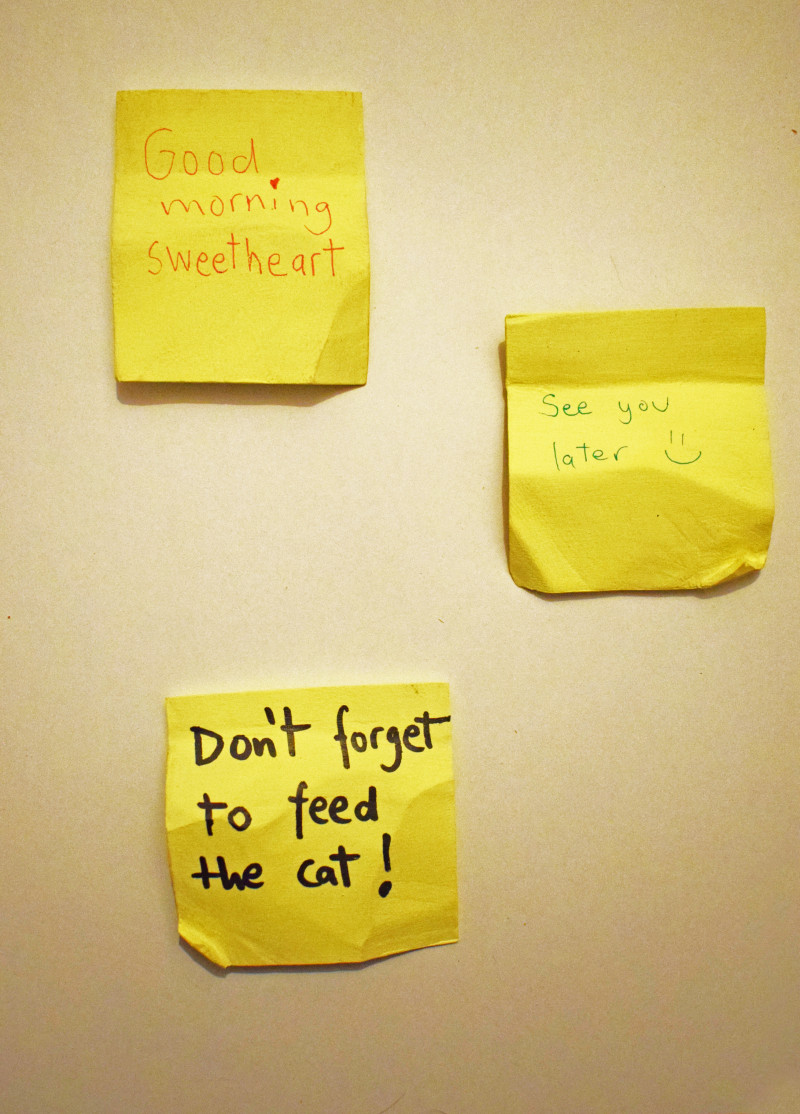 Good
morning
sweetheart
See you
later
Don't forget
to feed
the cat!